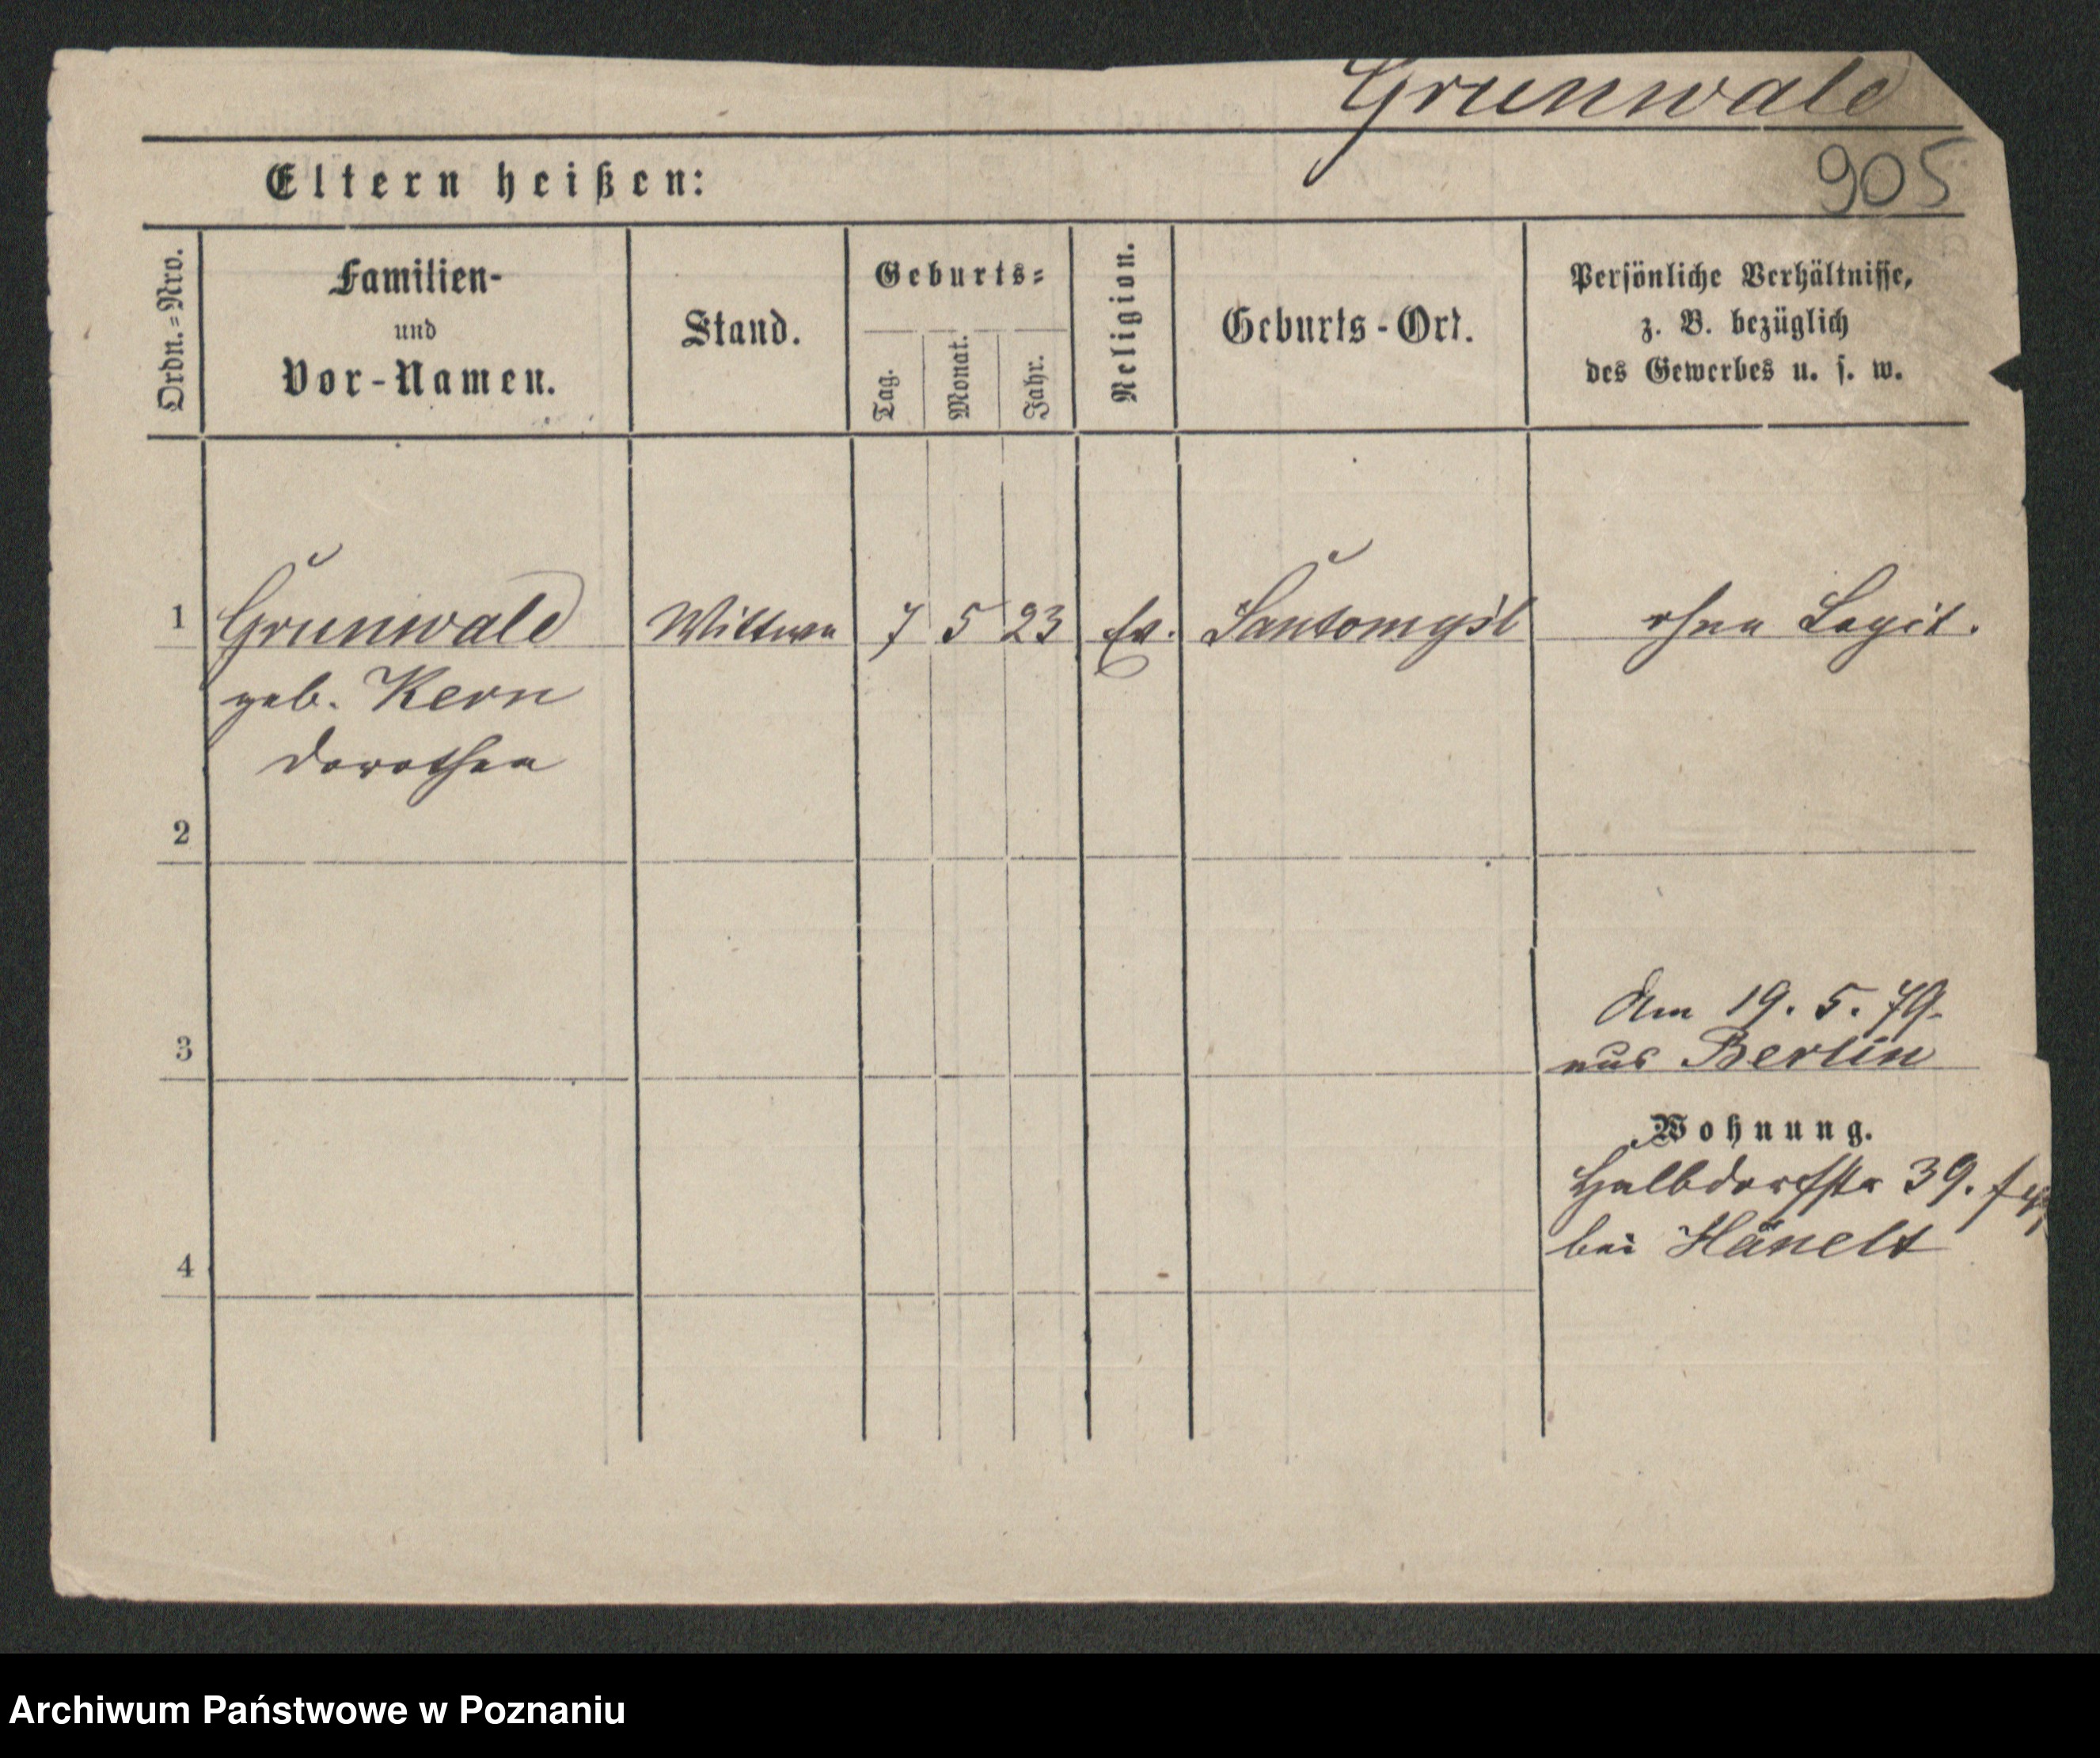 Grunwald
905
Eltern heißen:
Ordn.=Nro.
Familien-
und
Vor-Namen.
Stand.
Geburts=
Tag.
Monat.
Jahr.
Religion.
Geburts-Ort.
Persönliche Verhältnisse,
z. B. bezüglich
des Gewerbes u. s. w.
1 Grunwald Wittwe 7 5 23 Ev. Santomysl ohne Legit.
geb. Kern
Dorothea
2
Am 19. 5. 79.
3 aus Berlin
Wohnung.
Halbdorfstr 39.
bei Hänelt
4
Archiwum Państwowe w Poznaniu